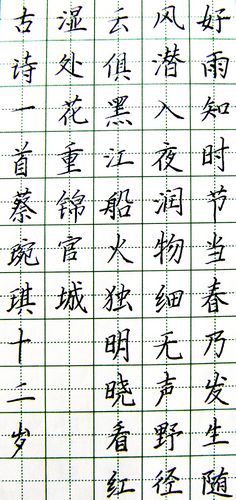 好雨知时节当春乃发生随
风潜入夜润物细无声野径
云俱黑江船火独明晓看红
湿处花重锦官城
古诗一首蔡琬琪十二岁